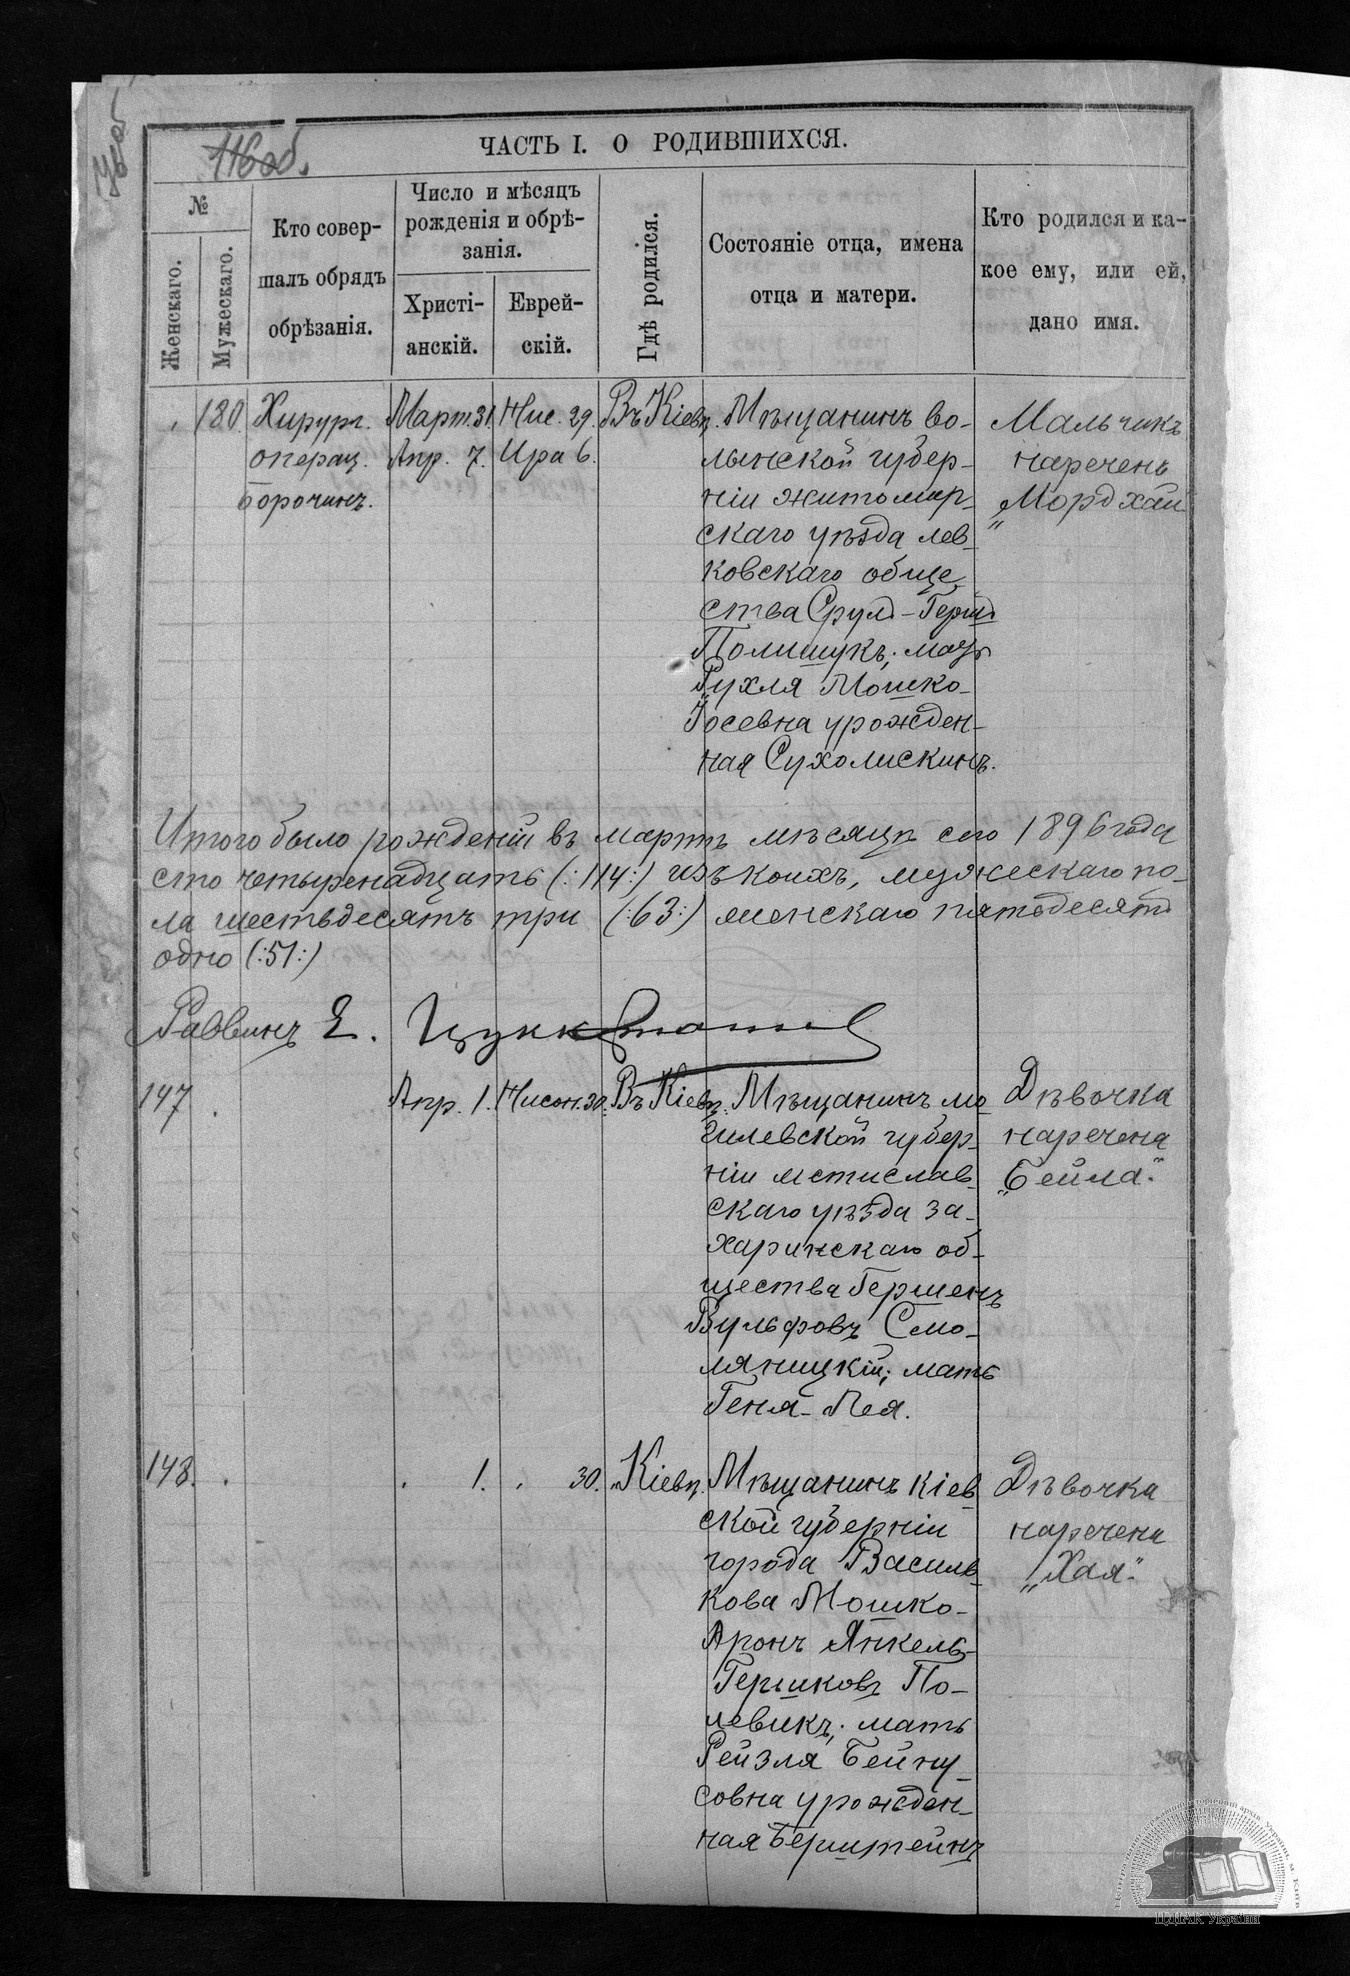 116об.
ЧАСТЬ I. О РОДИВШИХСЯ.
№
Женскаго.
Мужескаго.
Кто совер-
шалъ обрядъ
обрѣзанія.
Число и мѣсяцъ
рожденія и обрѣ-
занія.
Христі-
анскій.
Еврей-
скій.
Гдѣ родился.
Состояніе отца, имена
отца и матери.
Кто родился и ка-
кое ему, или ей,
дано имя.
180.
Хирург.
операц.
Борочинъ.
Март. 31.
Апр. 7.
Нис. 29.
Ира 6.
Въ Кіевѣ.
Мѣщанинъ во-
лынской губер-
ніи житомир-
скаго уѣзда лев-
ковскаго обще
ства Срулъ-Герш
Полищукъ; мать
Рухля Мошко-
Іосевна урожден-
ная Сухолискинъ.
Мальчикъ
нареченъ
„Мордхай"
Итого было рожденій въ мартѣ мѣсяцѣ сего 1896 года
сто четыренадцать (:114:) изъ коихъ, мужескаго по-
ла шестьдесятъ три (:63:) женскаго пятьдесятъ
одно (:51:)
Раввинъ Е. Цуккерманъ
147
Апр. 1.
Нисон. 30.
Въ Кіевѣ.
Мѣщанинъ мо
гилевской губер-
ніи мстислав-
скаго уѣзда за-
харинскаго об-
щества Гершенъ
Вульфовъ Смо-
ляницкій; мать
Геня-Лея.
Дѣвочка
наречена
„Бейла."
148.
1.
30.
„Кіевѣ.
Мѣщанинъ кіев
ской губерніи
города Василь-
кова Мошко-
Аронъ Янкель-
Гершковъ По-
левикъ; мать
Рейзля Бейну-
совна урожден-
ная Берштейнъ
Дѣвочка
наречена
„Хая."
ЦДІАК України